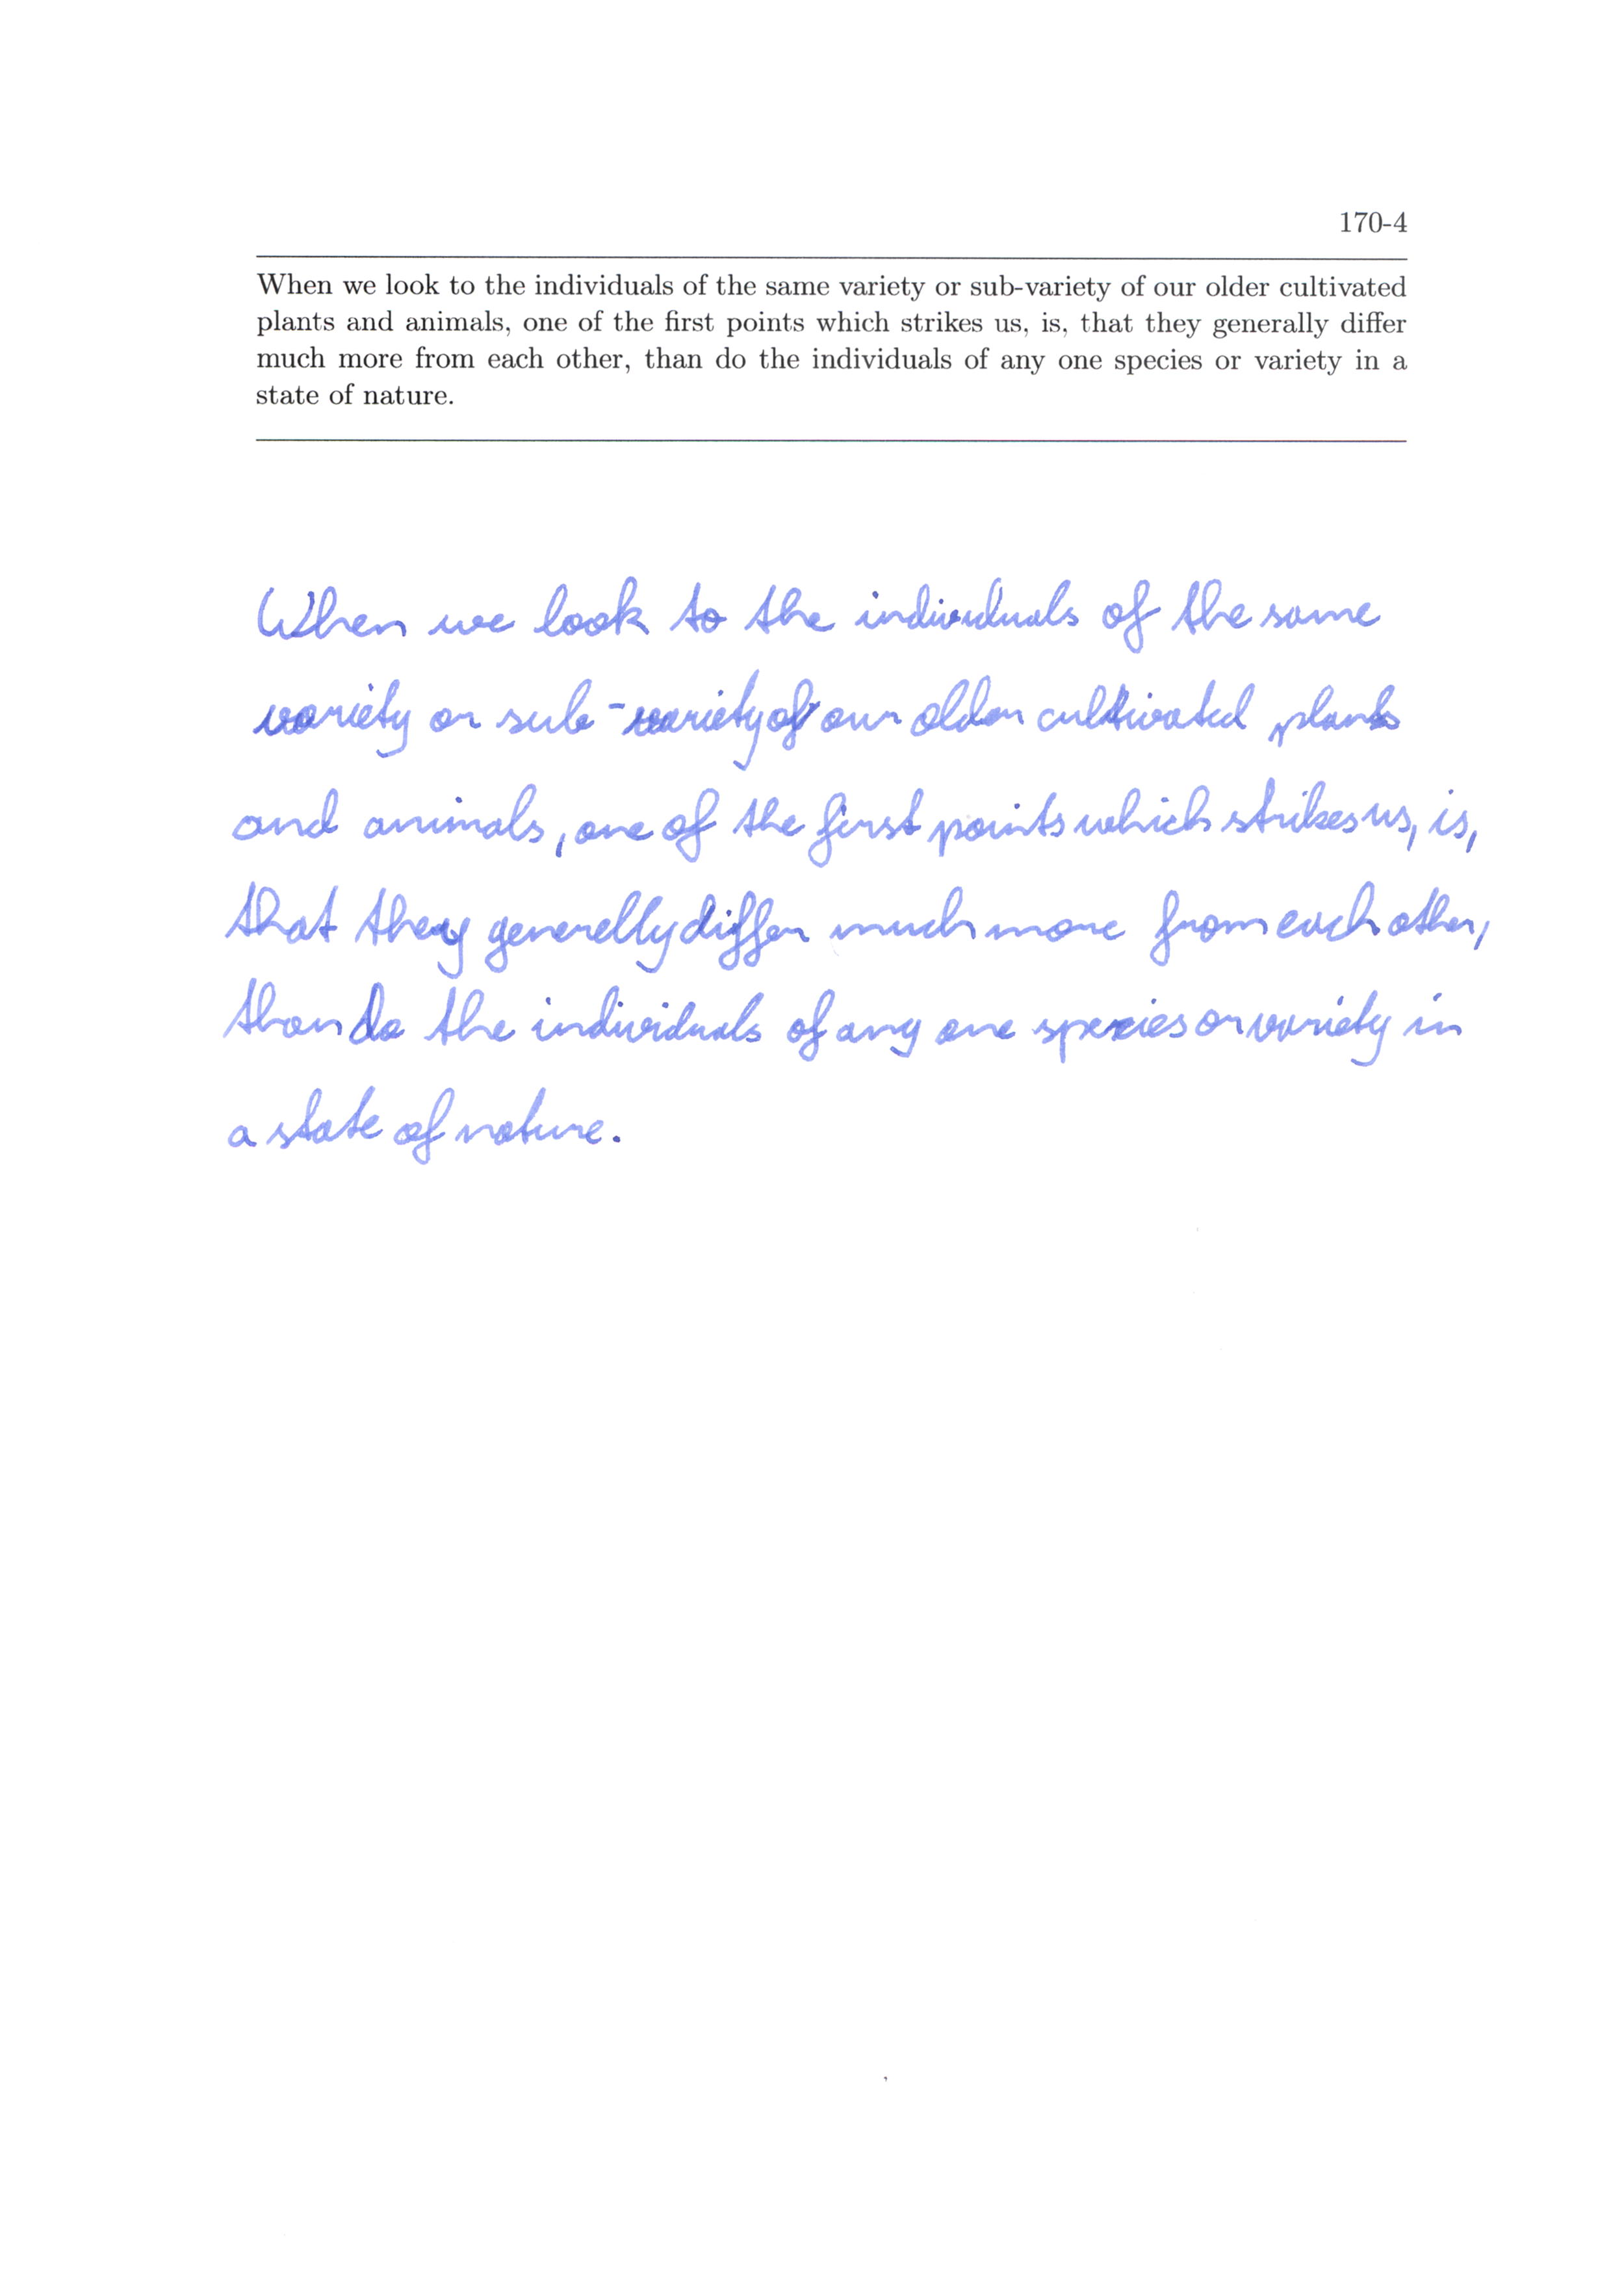 170-4
When we look to the individuals of the same variety or sub-variety of our older cultivated
plants and animals, one of the first points which strikes us, is, that they generally differ
much more from each other, than do the individuals of any one species or variety in a
state of nature.
When we look to the individuals of the same
variety or sub-variety of our older cultivated plants
and animals, one of the first points which strikes us, is,
that they generelly differ much more from each other,
than do the individuals of any one species or variety in
a state of nature.